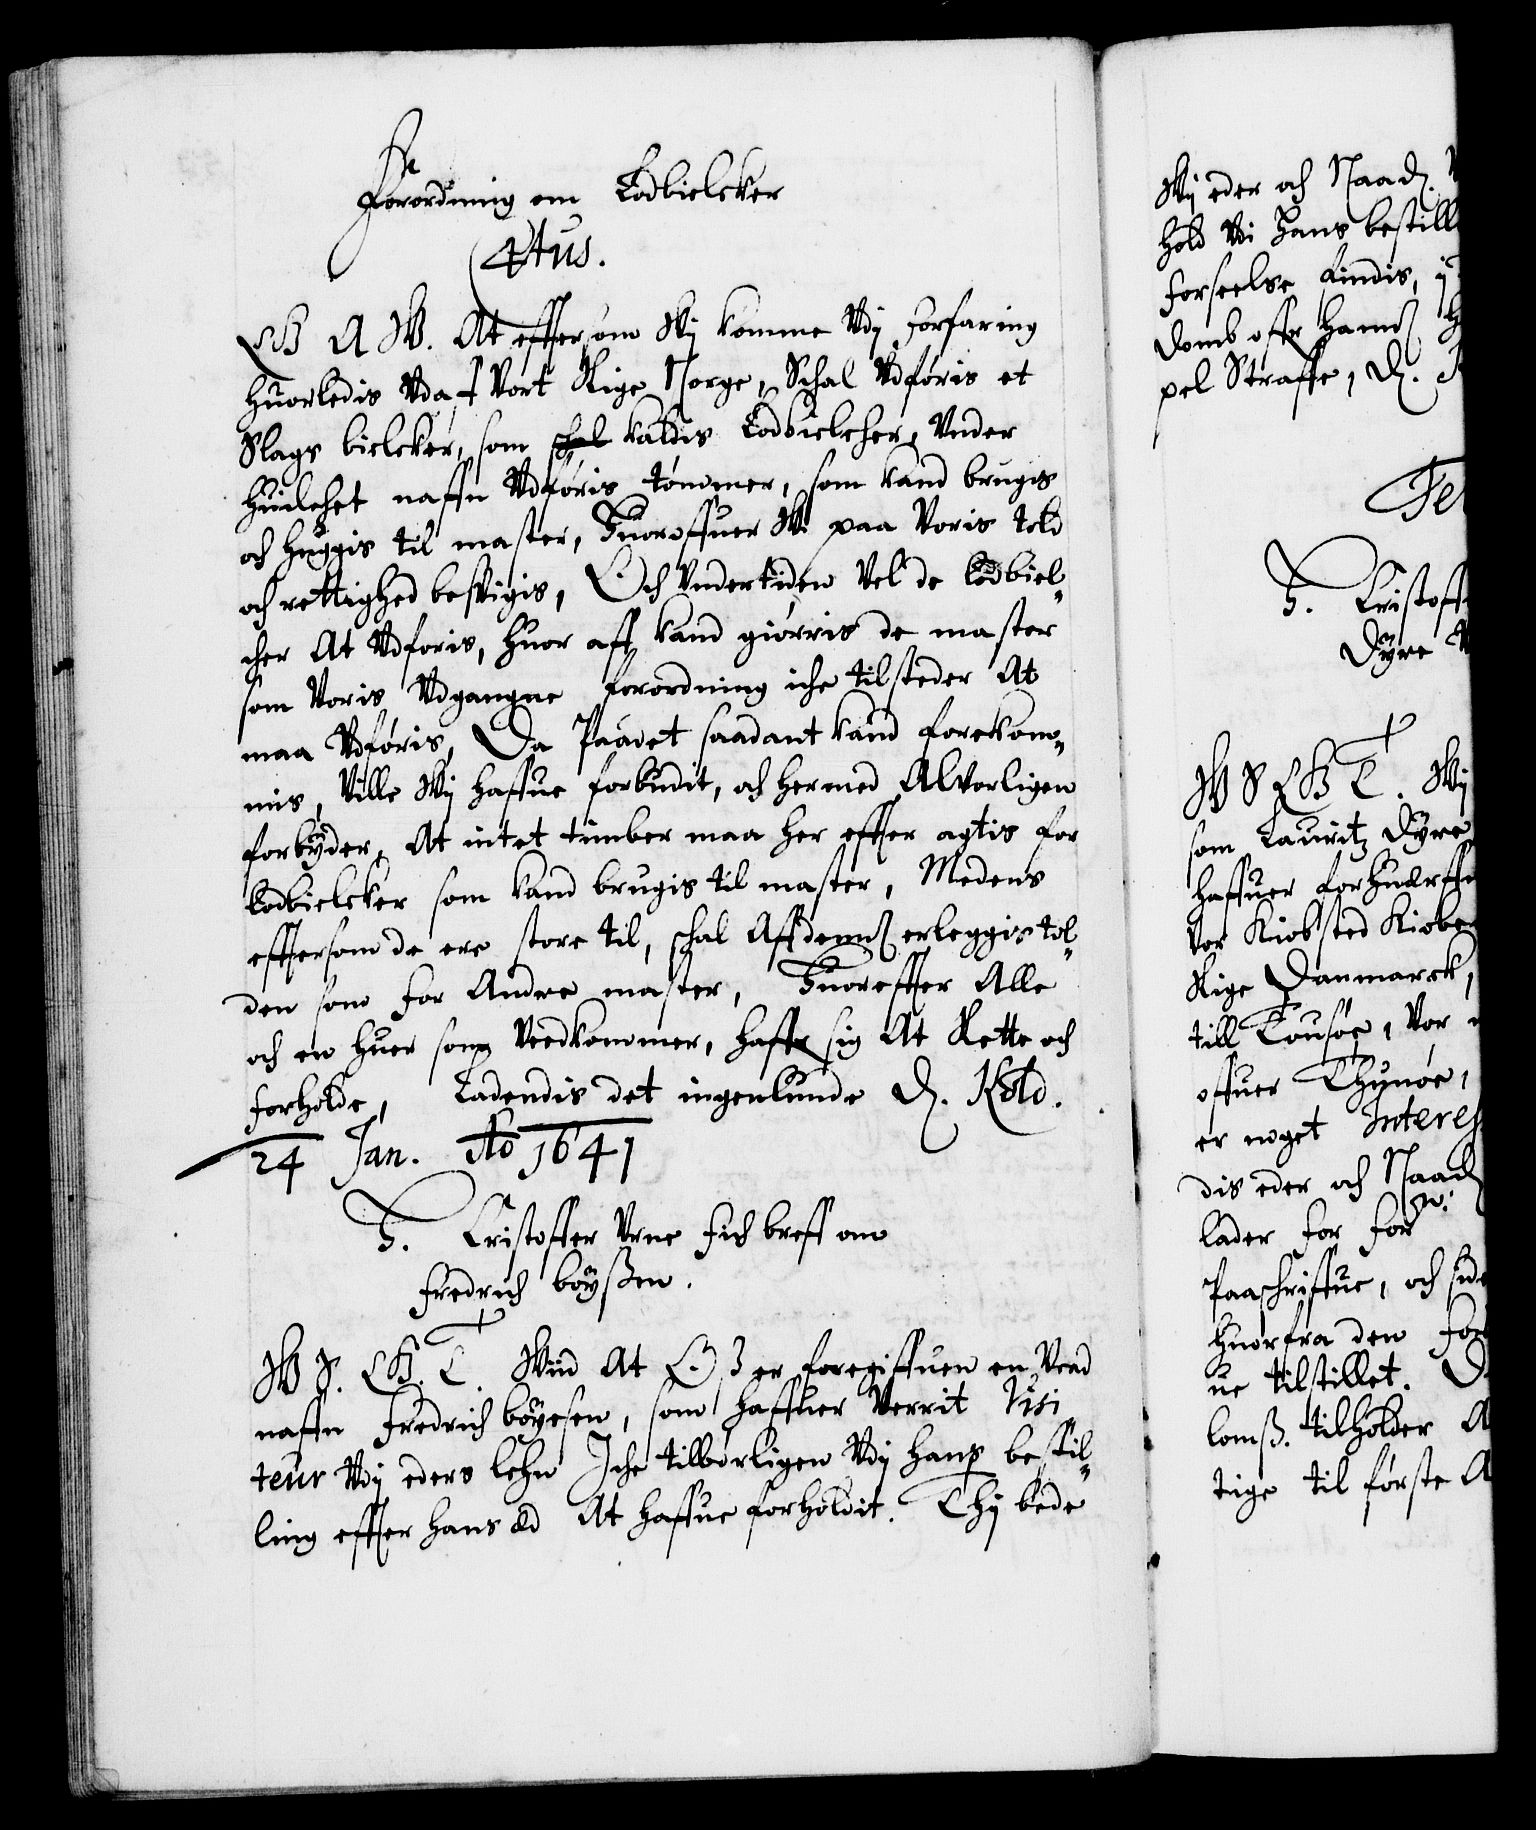 Forordning om Lodbielcker
C4tus.
G A W. At effterson Wij komme Vdj forfaring
huorledis Vdaf Vort Rige Norge, Schal Vdføris et
Slags bielcker, som schal kaldis Lodbielcher, Vnder
huilchet naffn Vdføris tømmer, som kand brugis
och huggis til master, Huoroffuer Wi paa Voris told
och rettighed besvigis, Och Vndertiden Vel de Lodbiel
cher At Vdforis, huor aff kand giørris de master
som Voris Vdgangne forordning iche tilsteder At
maa Vdføris, Da Paadet saadant kand forekom
mis, Ville Wij haffue forbudit, och hermed Alvorligen
forbyder, At intet timber maa her effter agtis for
Lodbielcker som kand brugis til master, Medens
effterson de ere store til, schal Affdennd erleggis tol
den som for Andre master, Huoreffter Alle
och en huer som Vedkommer, haffr sig At Rette och
forholde, Ladendis det ingenlunde d. Kold.
24 Jan. Ao 1641
H. Cristoffer Vrne fich breff om
Fredrich böyssen.
W S. G. T. Wiid At Os er foregiffuen en Vead
naffn Fredrich böyesen, som haffuer Verrit Visi
teur Vdj eders lehn Iche tilborligen Vdj hans bestil
ling effter hans æd At haffue forholdit. Thj bede
Wij eder och Naad.
hold Vdi Hans bestill
forseelse findis, i
domb offr hannd
pel Straffe, d.
H. Cristoff
Dyre
W S G T. Wij
som Lauritz Dyre
haffuer forhuerffu
Vor Kiøbsted Kiøben
Rige Danmarck,
till Tousøe, Vor
offuer Thunøe,
er noget Interes
dis eder och Naad
lader for forn:
Paaschriffue, och side
huorfra den for
ue tilstillet. D
lomss. tilholder A
tige til første A